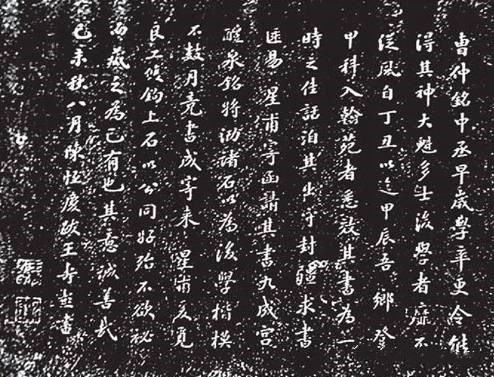 曹仲銘中丞早歲學率更令能
得其神大魁多士後學者靡不
從風自丁丑以迄甲辰吾鄉登
甲科入翰苑者悉效其書為一
時之佳話洎其出守封疆求書
匪易星甫寄函請其書九成宮
醴泉銘將泐諸石以為後學楷模
不數月竟書成寄來星甫爰覓
良工雙鉤上石以公同好殆不欲秘
而藏之為己有也其意誠善哉
己未秋八月陳恒慶跋王壽彭書